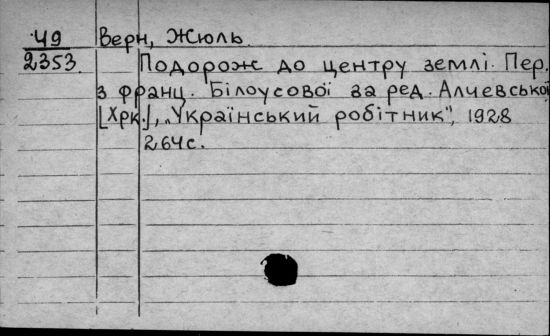 49 Верн, Жюль.
2353. Подорож до центру землі. Пер.
з франц. Білоусової за ред. Алчевської
[Хрк.], „Український робітник", 1928
264с.